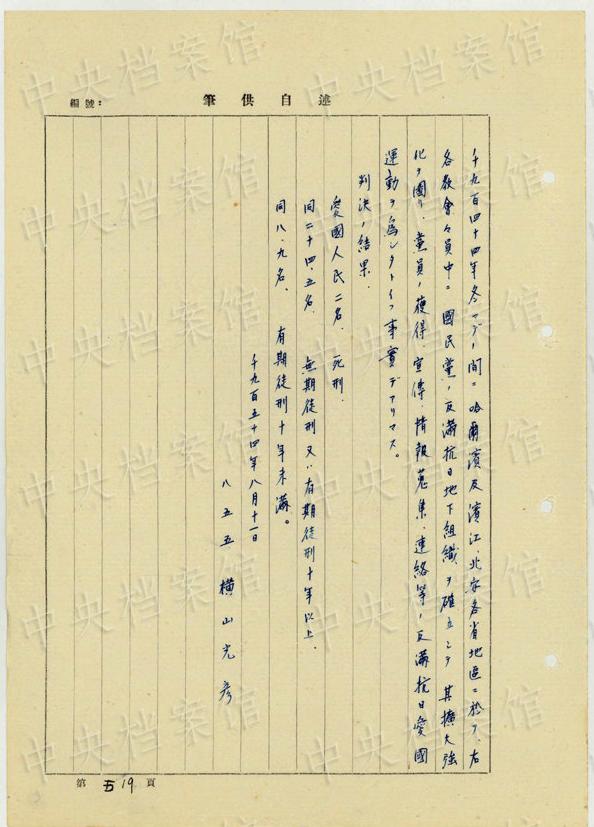 編號：
筆供自述
千九百四十四年冬マデノ間ニ哈爾濱及濱江、北安各省地區ニ於テ、右
各教會々員中ニ國民黨ノ反滿抗日地下組織ヲ確立シテ其擴大強
化ヲ圖リ、黨員ノ獲得、宣傳、情報蒐集、連絡等ノ反滿抗日愛國
運動ヲ為シタトイフ事實デアリマス。
判決ノ結果、
愛國人民二名、死刑、
同二十四、五名、無期徒刑又ハ有期徒刑十年以上、
同八、九名、有期徒刑十年未滿。
千九百五十四年八月十一日
八五五 橫山光彥
第 19 頁
中央档案馆